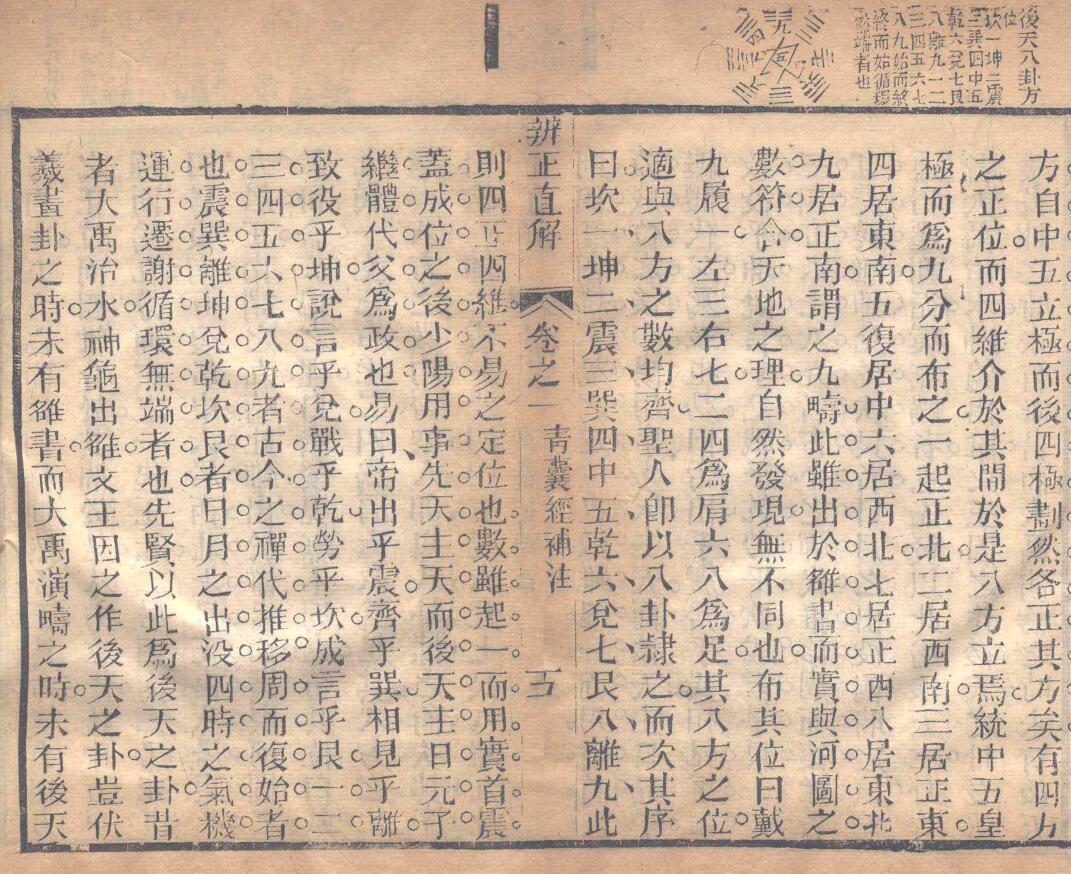 後天八卦方
位
坎一坤二震
三巽四中五
乾六兌七艮
八離九一二
三四五六七
八九始而終
終而始循環
無端者也
方自中五立極而後四極劃然各正其方矣有四方
之正位而四維介於其間於是八方立焉統中五皇
極而爲九分而布之一起正北二居西南三居正東
四居東南五復居中六居西北七居正西八居東北
九居正南謂之九疇此雖出於雒書而實與河圖之
數符合天地之理自然發現無不同也布其位曰戴
九履一左三右七二四爲肩六八爲足其八方之位
適與八方之數均齊聖人卽以八卦隷之而次其序
曰坎一坤二震三巽四中五乾六兌七艮八離九此
辨正直解 卷之一 青囊經補注 五
則四正四維不易之定位也數雖起一而用實首震
葢成位之後少陽用事先天主天而後天主日元子
繼體代父爲政也易曰帝出乎震齊乎巽相見乎離
致役乎坤說言乎兌戰乎乾勞乎坎成言乎艮一二
三四五六七八九者古今之禪代推移周而復始者
也震巽離坤兌乾坎艮者日月之出没四時之氣機
運行遷謝循環無端者也先賢以此爲後天之卦昔
者大禹治水神龜出雒文王因之作後天之卦豈伏
羲畫卦之時未有雒書而大禹演疇之時未有後天